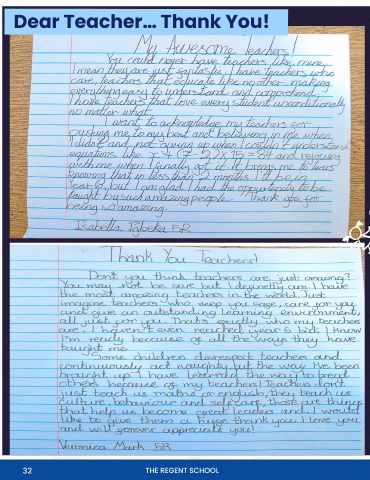 Dear Teacher... Thank You!
My Awesome Teachers!
You could never have teachers like mine,
I mean they are just fantastic. I have teachers who
care, teachers that educate like no other, making
everything easy to understand and comprehend,
I have teachers that love every student unconditionally
no matter what.
I want to acknowledge my teachers for
pushing me to my best and believing in me when
I didn't and not giving up when I couldn't understand
equations like and rejoicing
with me when I finally got it. It brings me to tears
knowing that in less than 2 months I'll be in
Year 6, but I am glad I had the opportunity to be
taught by such amazing people. Thank you for
being so amazing.
Isabella 5R
Thank You Teachers!
Don't you think teachers are just amazing?
You may not be sure but I definetly am. I have
the most amazing teachers in the world. Just
imagine teachers who keep you safe, care for you
and give an outstanding learning environment,
all just for you. That's exactly who my teachers
are. I haven't even reached year 6 but I know
I'm ready because of all the ways they have
taught me.
Some children disrespect teachers and
continuously act naughty but the way I've been
brought up I have learned the way to treat
others because of my teachers! Teachers don't
just teach us maths or english, they teach us
culture, behaviour and self care, those are things
that help us become great leaders and I would
like to give them a huge thank you. I love you
and will forever appreciate you!
Veronica Mark 5R
32 THE REGENT SCHOOL